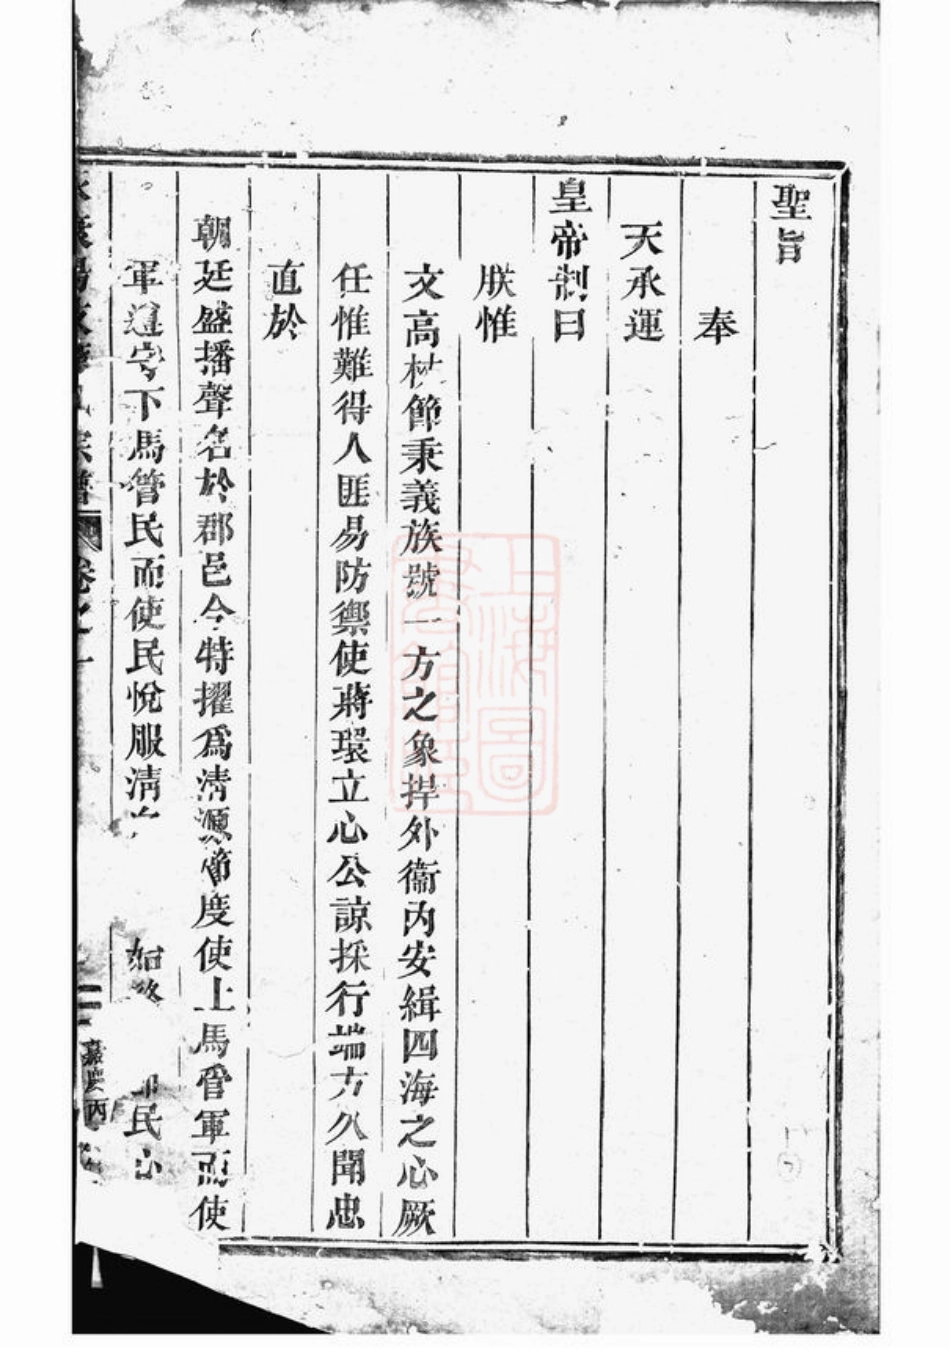 聖旨
奉
天承運
皇帝制曰
朕惟
文高杖節秉義族號一方之象捍外衞內安緝四海之心厥
任惟難得人匪易防禦使蔣環立心公諒採行端方久聞忠
直於
朝廷盛播聲名於郡邑今特擢爲清源節度使上馬管軍而使
軍遵守下馬管民而使民悅服清
如終
民心
宗譜
卷之一
嘉慶丙
上海圖書館藏